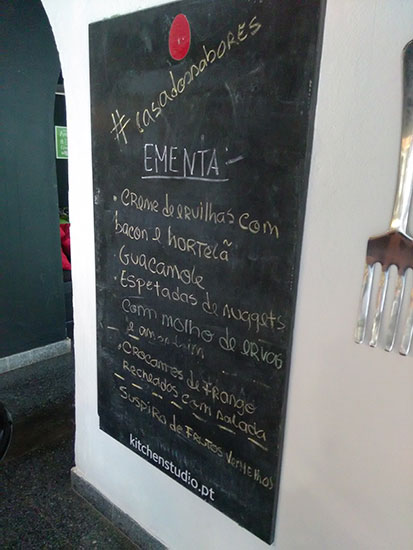 #casadossabores
EMENTA:-
• Creme de ervilhas com
bacon e hortelã
Guacamole
• Espetadas de nuggets
com molho de ervas
e amendoim
• Crocantes de frango
recheados com salada
Suspiro de frutos vermelhos
kitchenstudio.pt